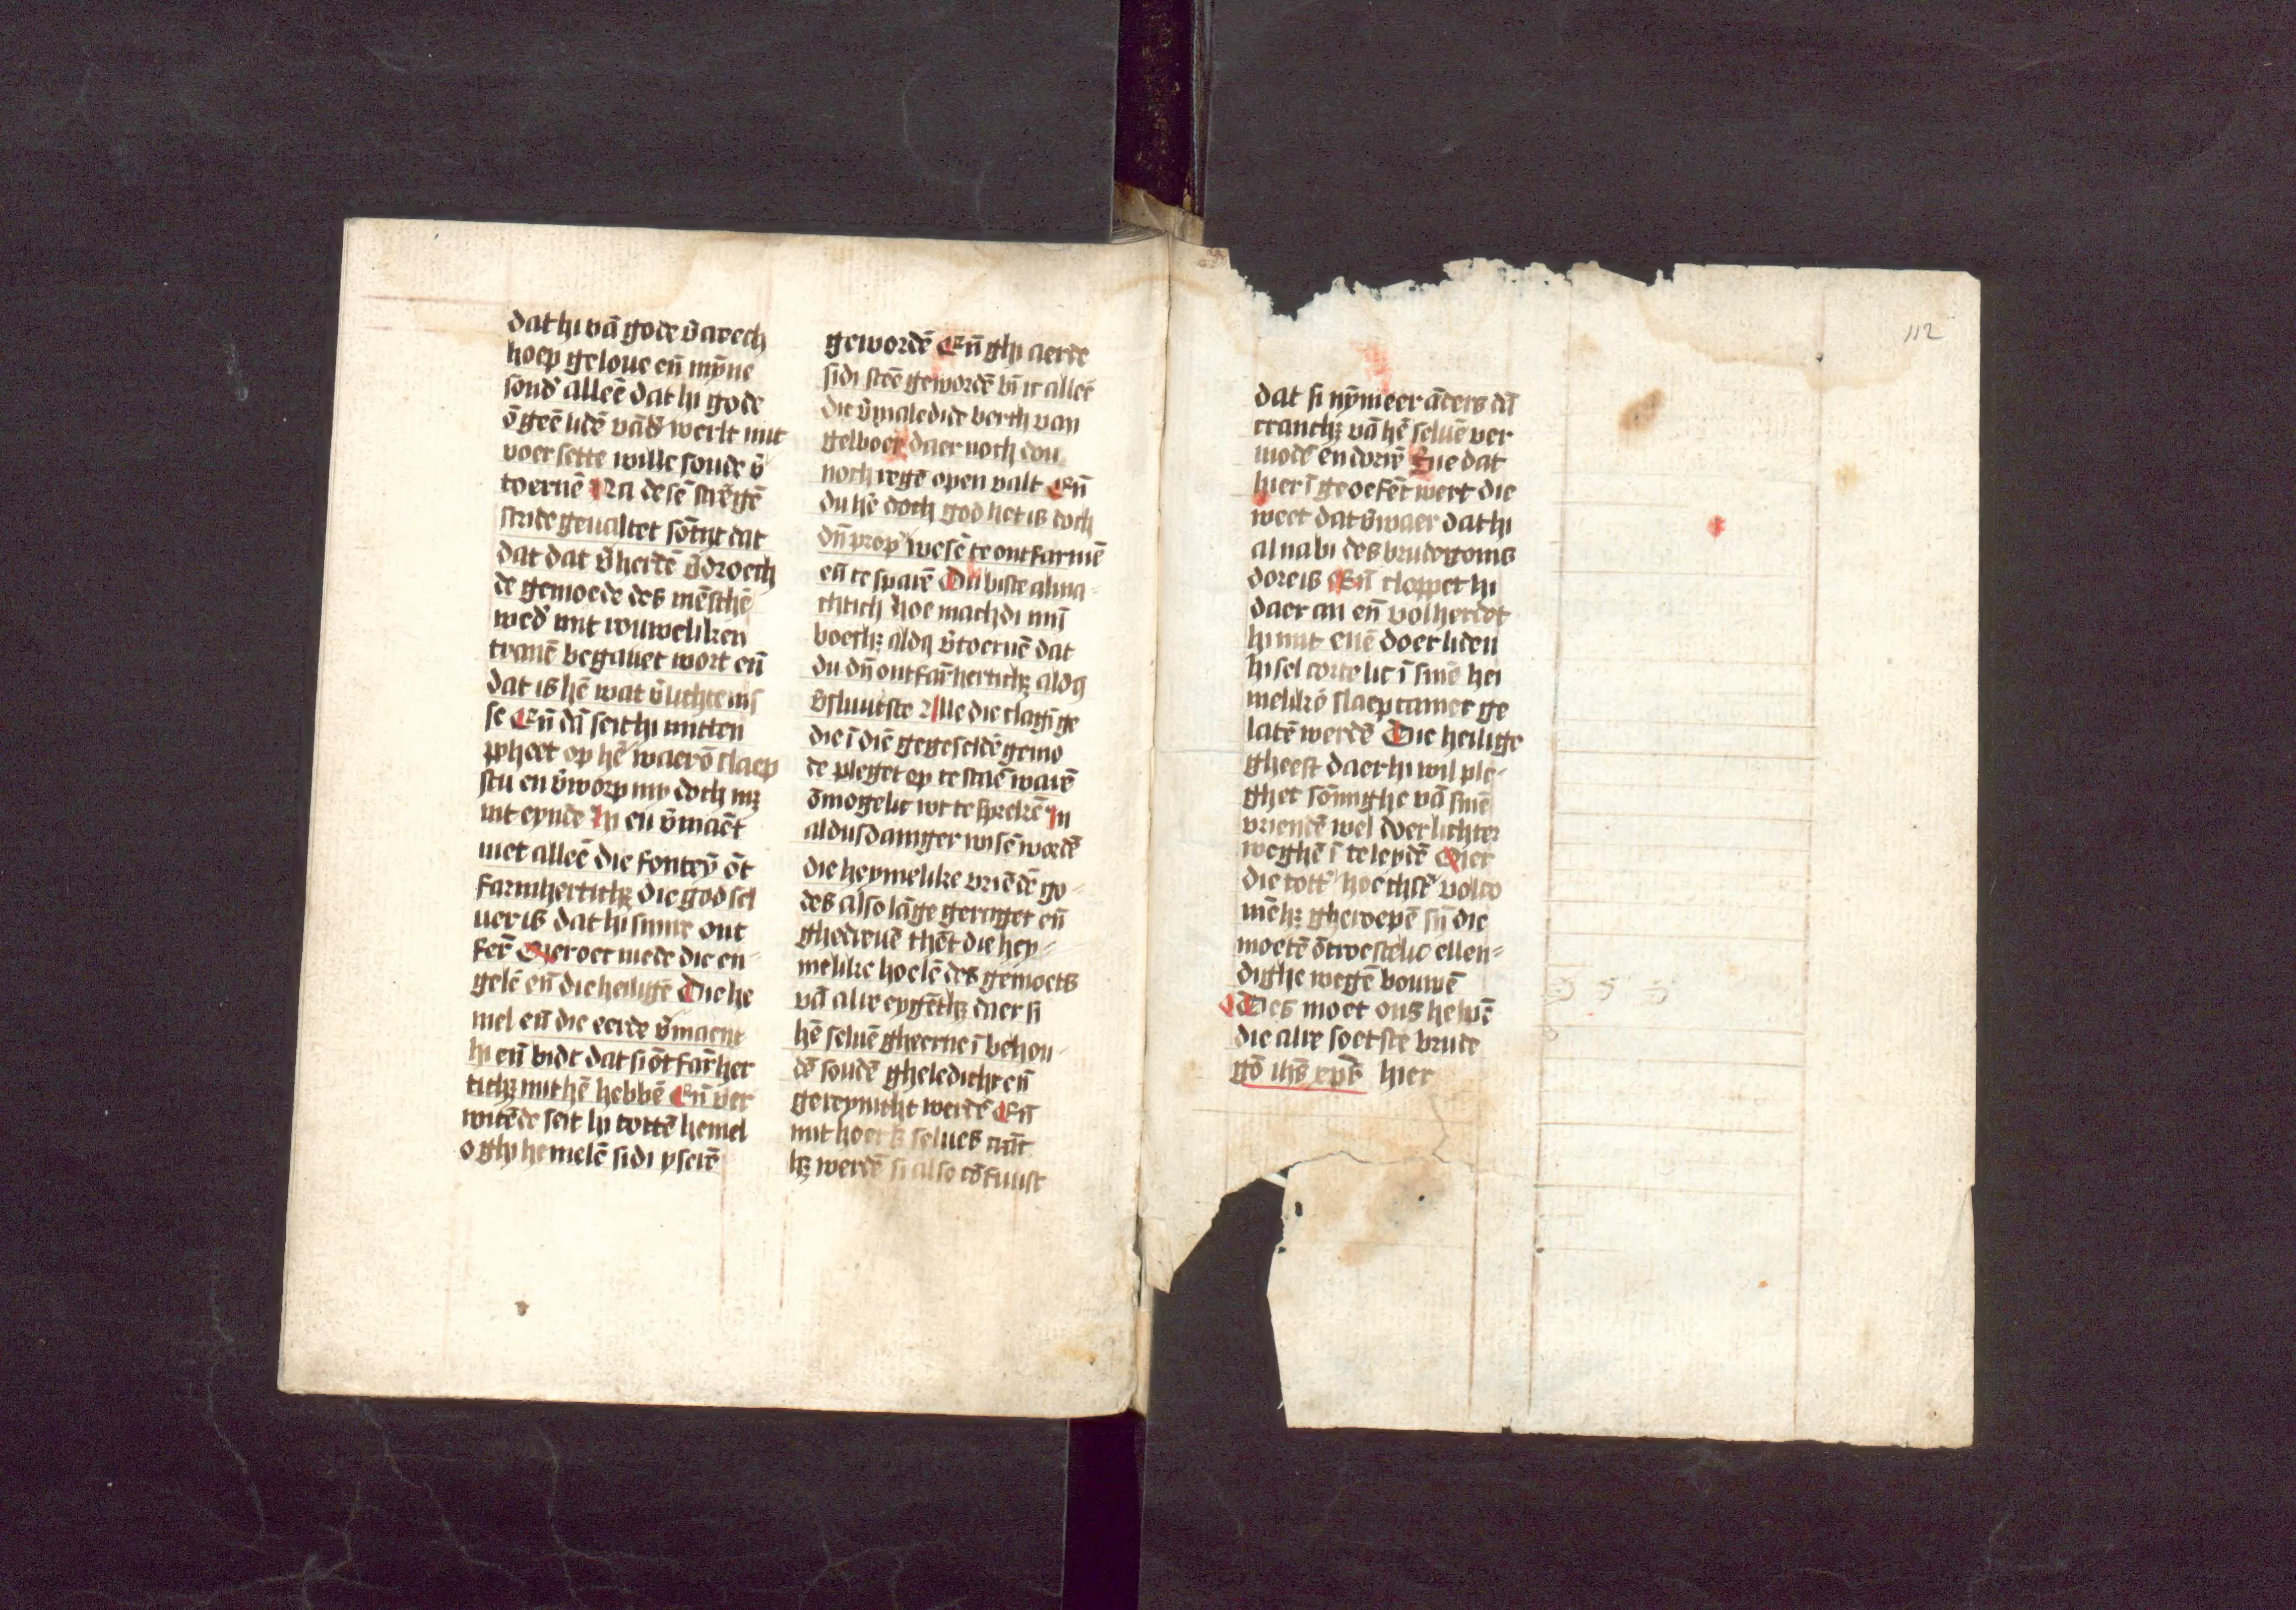 dat hi vā gode v̄acech
hoep geloue eñ mȳne
sond' alleē dat hi gode
ō geē lidē vād' werlt mit
voersette wille soude v̄
toernē Na desē strēgē
stride geualtet sōtyt dat
dat dat v̄herdē v̄droech
de gemoede des mēschē
wed' mit rouweliken
tranē begauet wort eñ
dat is hē wat v̄luchtenis
se Eñ dā seit hi mitten
ppheet op hē waerō slaep
stu en v̄worp my doch nz
int eynde Jn en v̄maēt
niet alleē die fonteȳ ōt
farmherticħz die god sel
uer is dat hi sinre ont
ferē Mer oec mede die en-
gelē eñ die heiligē Die he
mel eñ die eerde v̄maent
hi eñ bidt dat si ōtfarm̄her
ticħz mit hē hebbē Eñ ver
witēde seit hi tottē hemel
o ghi hemelē sidi yserē
gewordē Eñ ghi aerde
sidi steē gewordē bī ic alleē
die v̄maledide berch van
gelboe daer noch dou
noch regē open valt Eñ
du hē doch god het is doch
dīn prop' wesē te ontfarmē
eñ te sparē Du biste alma-
chtich hoe machdi mī
boetħz aldq v̄toernē dat
du dīn ontfarm̄herticħz aldq
v̄sluutste Alle die clagīge
die ī diē gegeseldē gemo
de pleget op te staē warē
ōmogelic wt te sprekē Jn
aldusdaniger wisē wordē
die heymelike vriēdē go-
des also lāge geringet eñ
ghedreuē thēt die hey-
melike hoelē des gemoets
vā alre eygētħz daer si
hē seluē gheerne ī behou-
dē soudē gheledicht eñ
gereynicht werdē Eñ
mit hoers selues
ħz werdē si also cōfuust
112
dat si nȳmeer āders dā
crancħz vā hē seluē ver
moedē en dorrē Die dat
hier ī geoefēt wert die
weet dat v̄waer dat hi
al nabi des brudegoms
dore is Eñ cloppet hi
daer an eñ volherdet
hi mit euē doer liden
hi sel cortelic ī sinē hei
melikē slaepcamer ge
latē werdē Die heilige
gheest daer hi wil ple-
ghet sōmighe vā sinē
vriendē wel doer lichter
weghē ī te leydē Mer
die tott' hoechst' volco
mēħz gheroepē sīn die
moetē ōtroestelic ellen-
dighe wegē bouwē
Des moet ons helpē
die alre soetste brude
gō iħs xp̄s hier